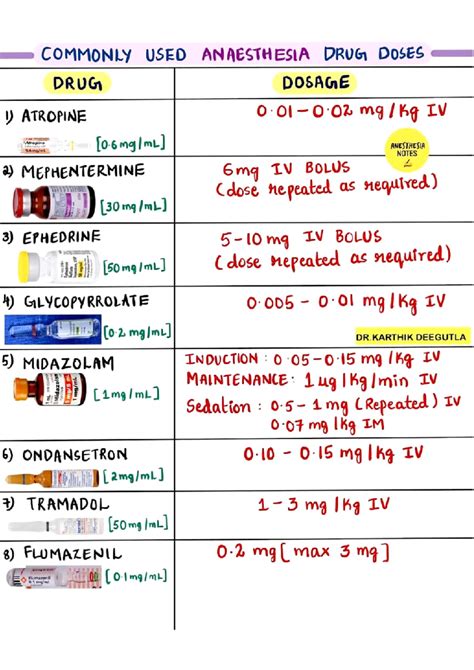 COMMONLY USED ANAESTHESIA DRUG DOSES
DRUG
DOSAGE
1) ATROPINE
[0.6 mg/mL]
0.01 – 0.02 mg/kg IV
ANESTHESIA
NOTES
2) MEPHENTERMINE
[30 mg/mL]
6mg IV BOLUS
(dose repeated as required)
3) EPHEDRINE
[50mg/mL]
5-10 mg IV BOLUS
(dose repeated as required)
4) GLYCOPYRROLATE
[0.2 mg/mL]
0.005 – 0.01 mg/kg IV
DR.KARTHIK DEEGUTLA
5) MIDAZOLAM
[1mg/mL]
INDUCTION : 0.05-0.15 mg/kg IV
MAINTENANCE: 1 ug/kg/min IV
Sedation : 0.5-1mg (Repeated) IV
0.07 mg/kg IM
6) ONDANSETRON
[2mg/mL]
0.10 – 0.15 mg/kg IV
7) TRAMADOL
[50mg/mL]
1-3 mg/kg IV
8) FLUMAZENIL
[0.1mg/mL]
0.2 mg [max 3 mg]